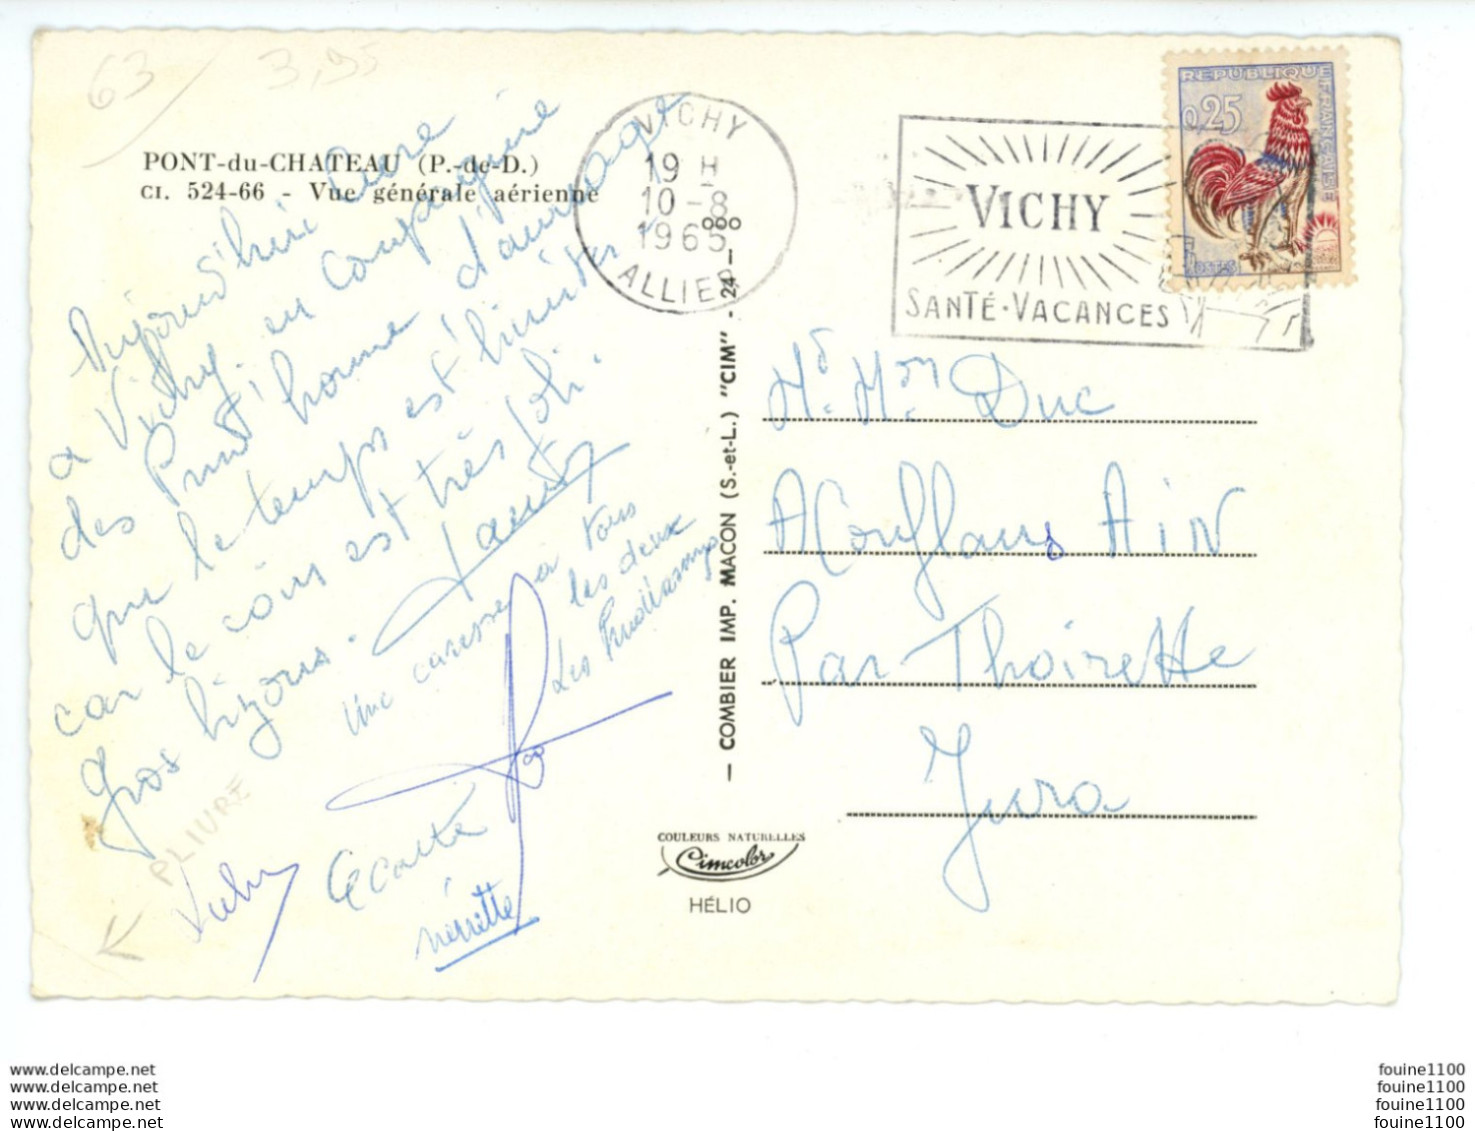 63
3,95
PONT-du-CHATEAU (P.-de-D.)
CI. 524-66 - Vue générale aérienne
Aujourd'hui
à Vichy en compagnie
des Prud'homme d'auvergne
que le temps est
car le coin est très joli.
Gros bizous.
Une caresse à vous
les deux
Les Prudhomme
PLIURE
Ecotte
VICHY
19 H
10-8
1965
ALLIER
VICHY
SANTÉ·VACANCES
REPUBLIQUE FRANÇAISE
0,25
POSTES
— COMBIER IMP. MACON (S.-et-L.) "CIM" - 24 —
COULEURS NATURELLES
Cimcolor
HÉLIO
Mr. Mme Duc
A Conflans AiN
Par Thoirette
Jura
www.delcampe.net
www.delcampe.net
www.delcampe.net
www.delcampe.net
fouine1100
fouine1100
fouine1100
fouine1100